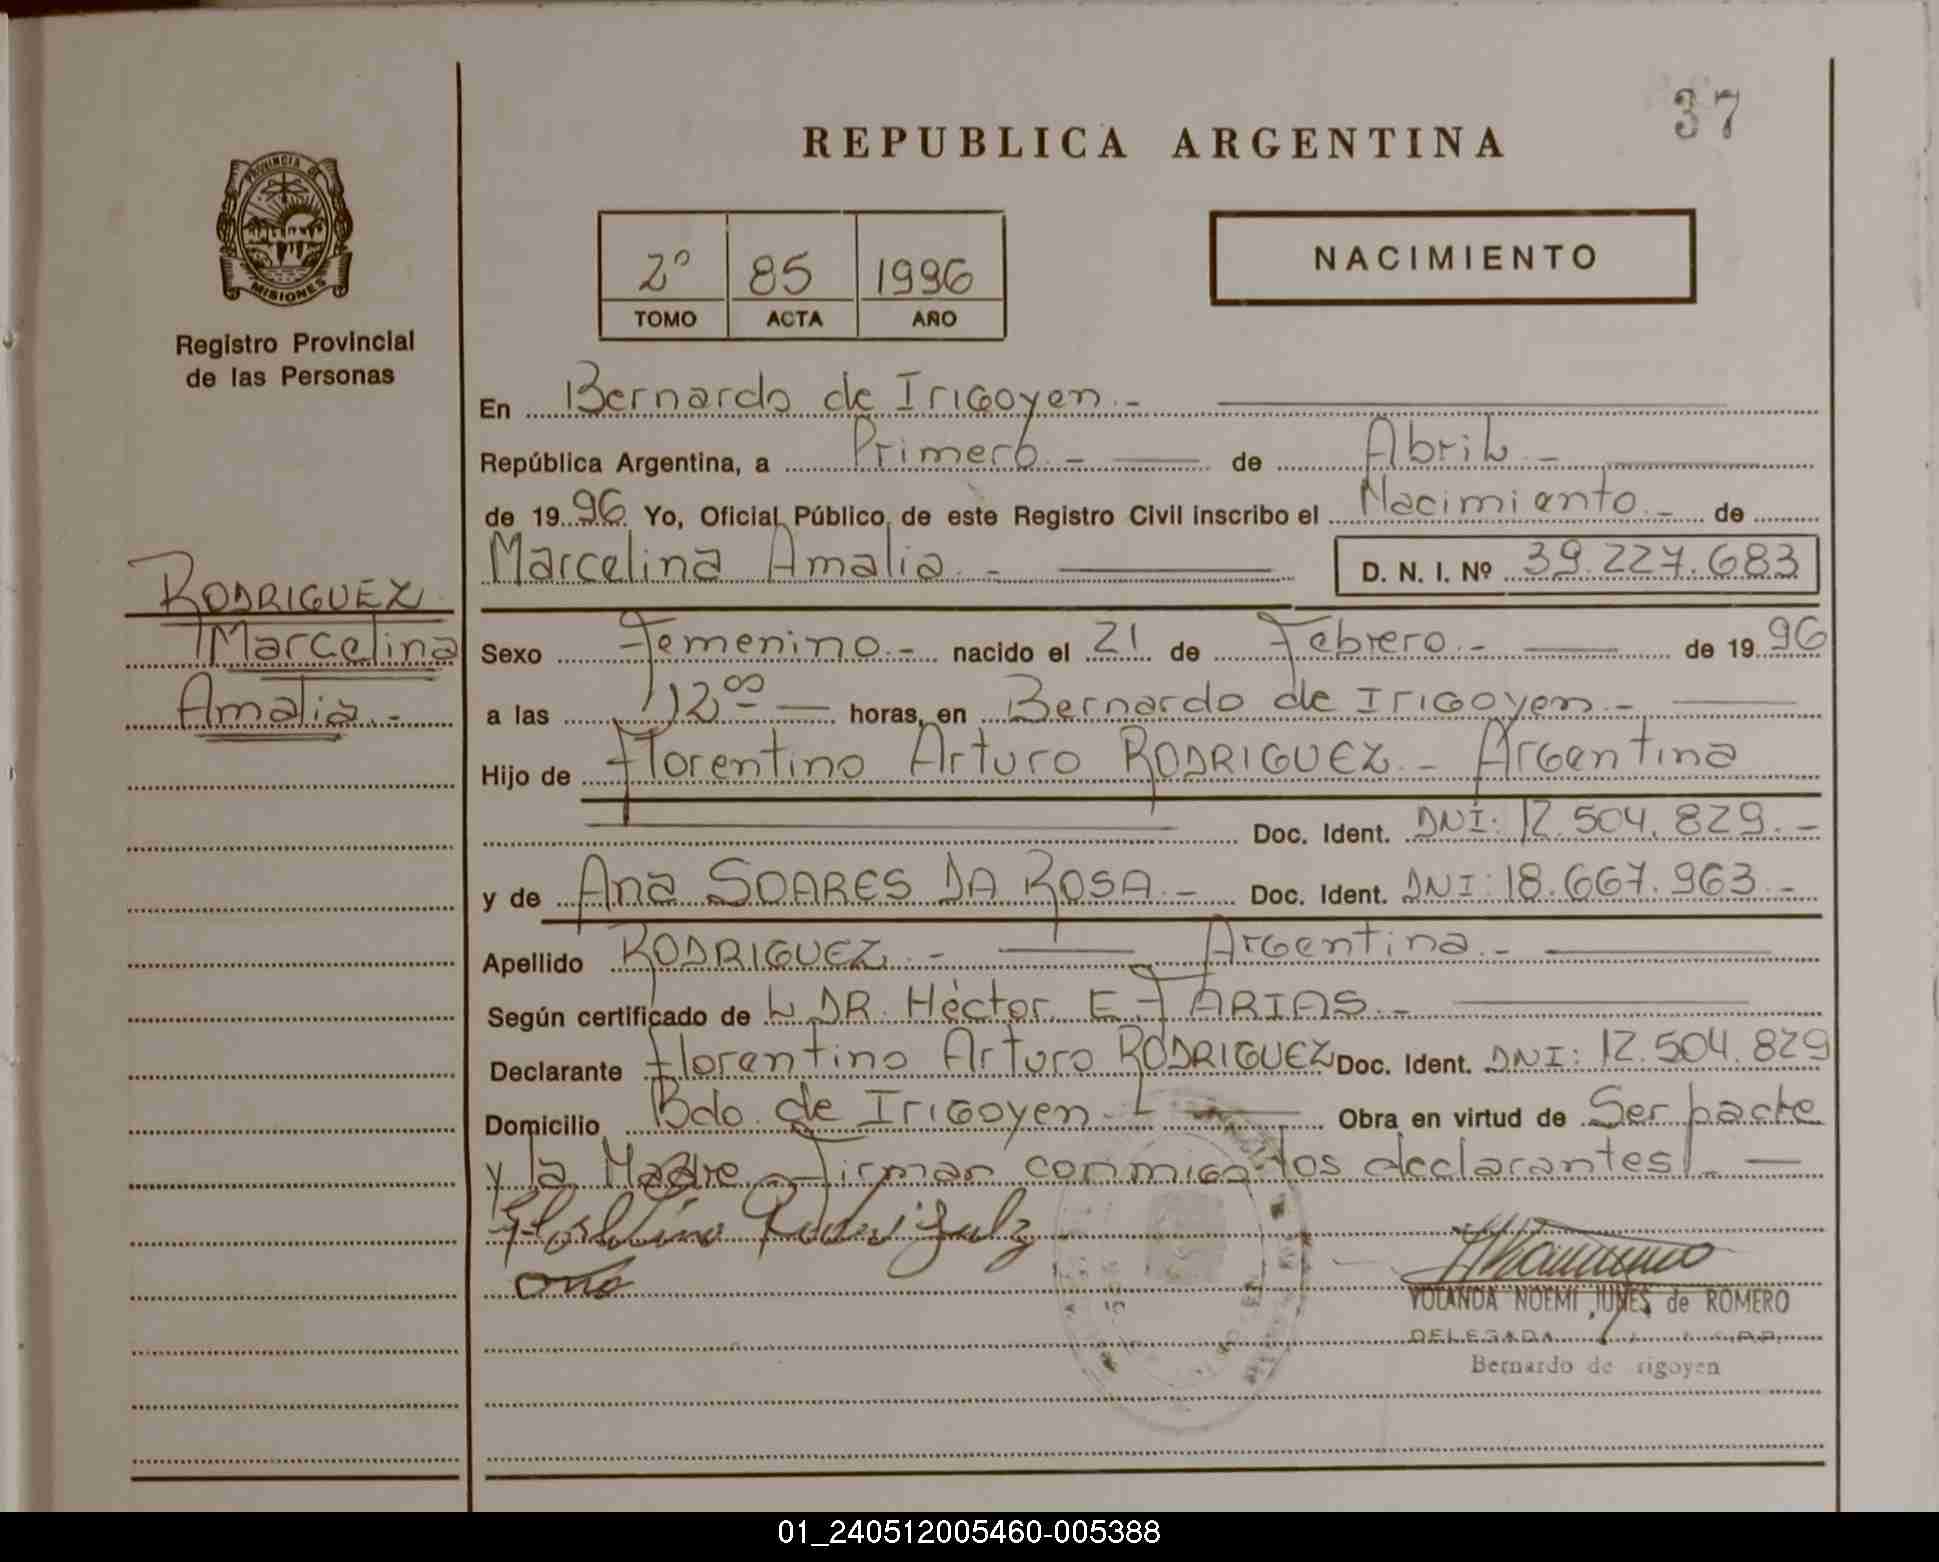 37
REPUBLICA ARGENTINA
PROVINCIA DE
MISIONES
Registro Provincial
de las Personas
2º 85 1996
TOMO ACTA AÑO
NACIMIENTO
En Bernardo de Irigoyen.-
República Argentina, a Primero.- de Abril.-
de 1996 Yo, Oficial Público de este Registro Civil inscribo el Nacimiento.- de
Marcelina Amalia.- D. N. I. Nº 39.227.683
RODRIGUEZ
Marcelina
Amalia.-
Sexo Femenino.- nacido el 21 de Febrero.- de 1996
a las 12 00 horas, en Bernardo de Irigoyen.-
Hijo de Florentino Arturo RODRIGUEZ.- Argentina
Doc. Ident. DNI: 12.504.829.-
y de Ana SOARES DA ROSA.- Doc. Ident. DNI: 18.667.963.-
Apellido RODRIGUEZ.- Argentina.-
Según certificado de L DR. Héctor E. FARIAS.-
Declarante Florentino Arturo RODRIGUEZ Doc. Ident. DNI: 12.504.829
Domicilio Bdo. de Irigoyen.- Obra en virtud de Ser padre
y la Madre.- Firman conmigo los declarantes.-
YOLANDA NOEMI JUNES de ROMERO
DELEGADA
Bernardo de rigoyen
01_240512005460-005388